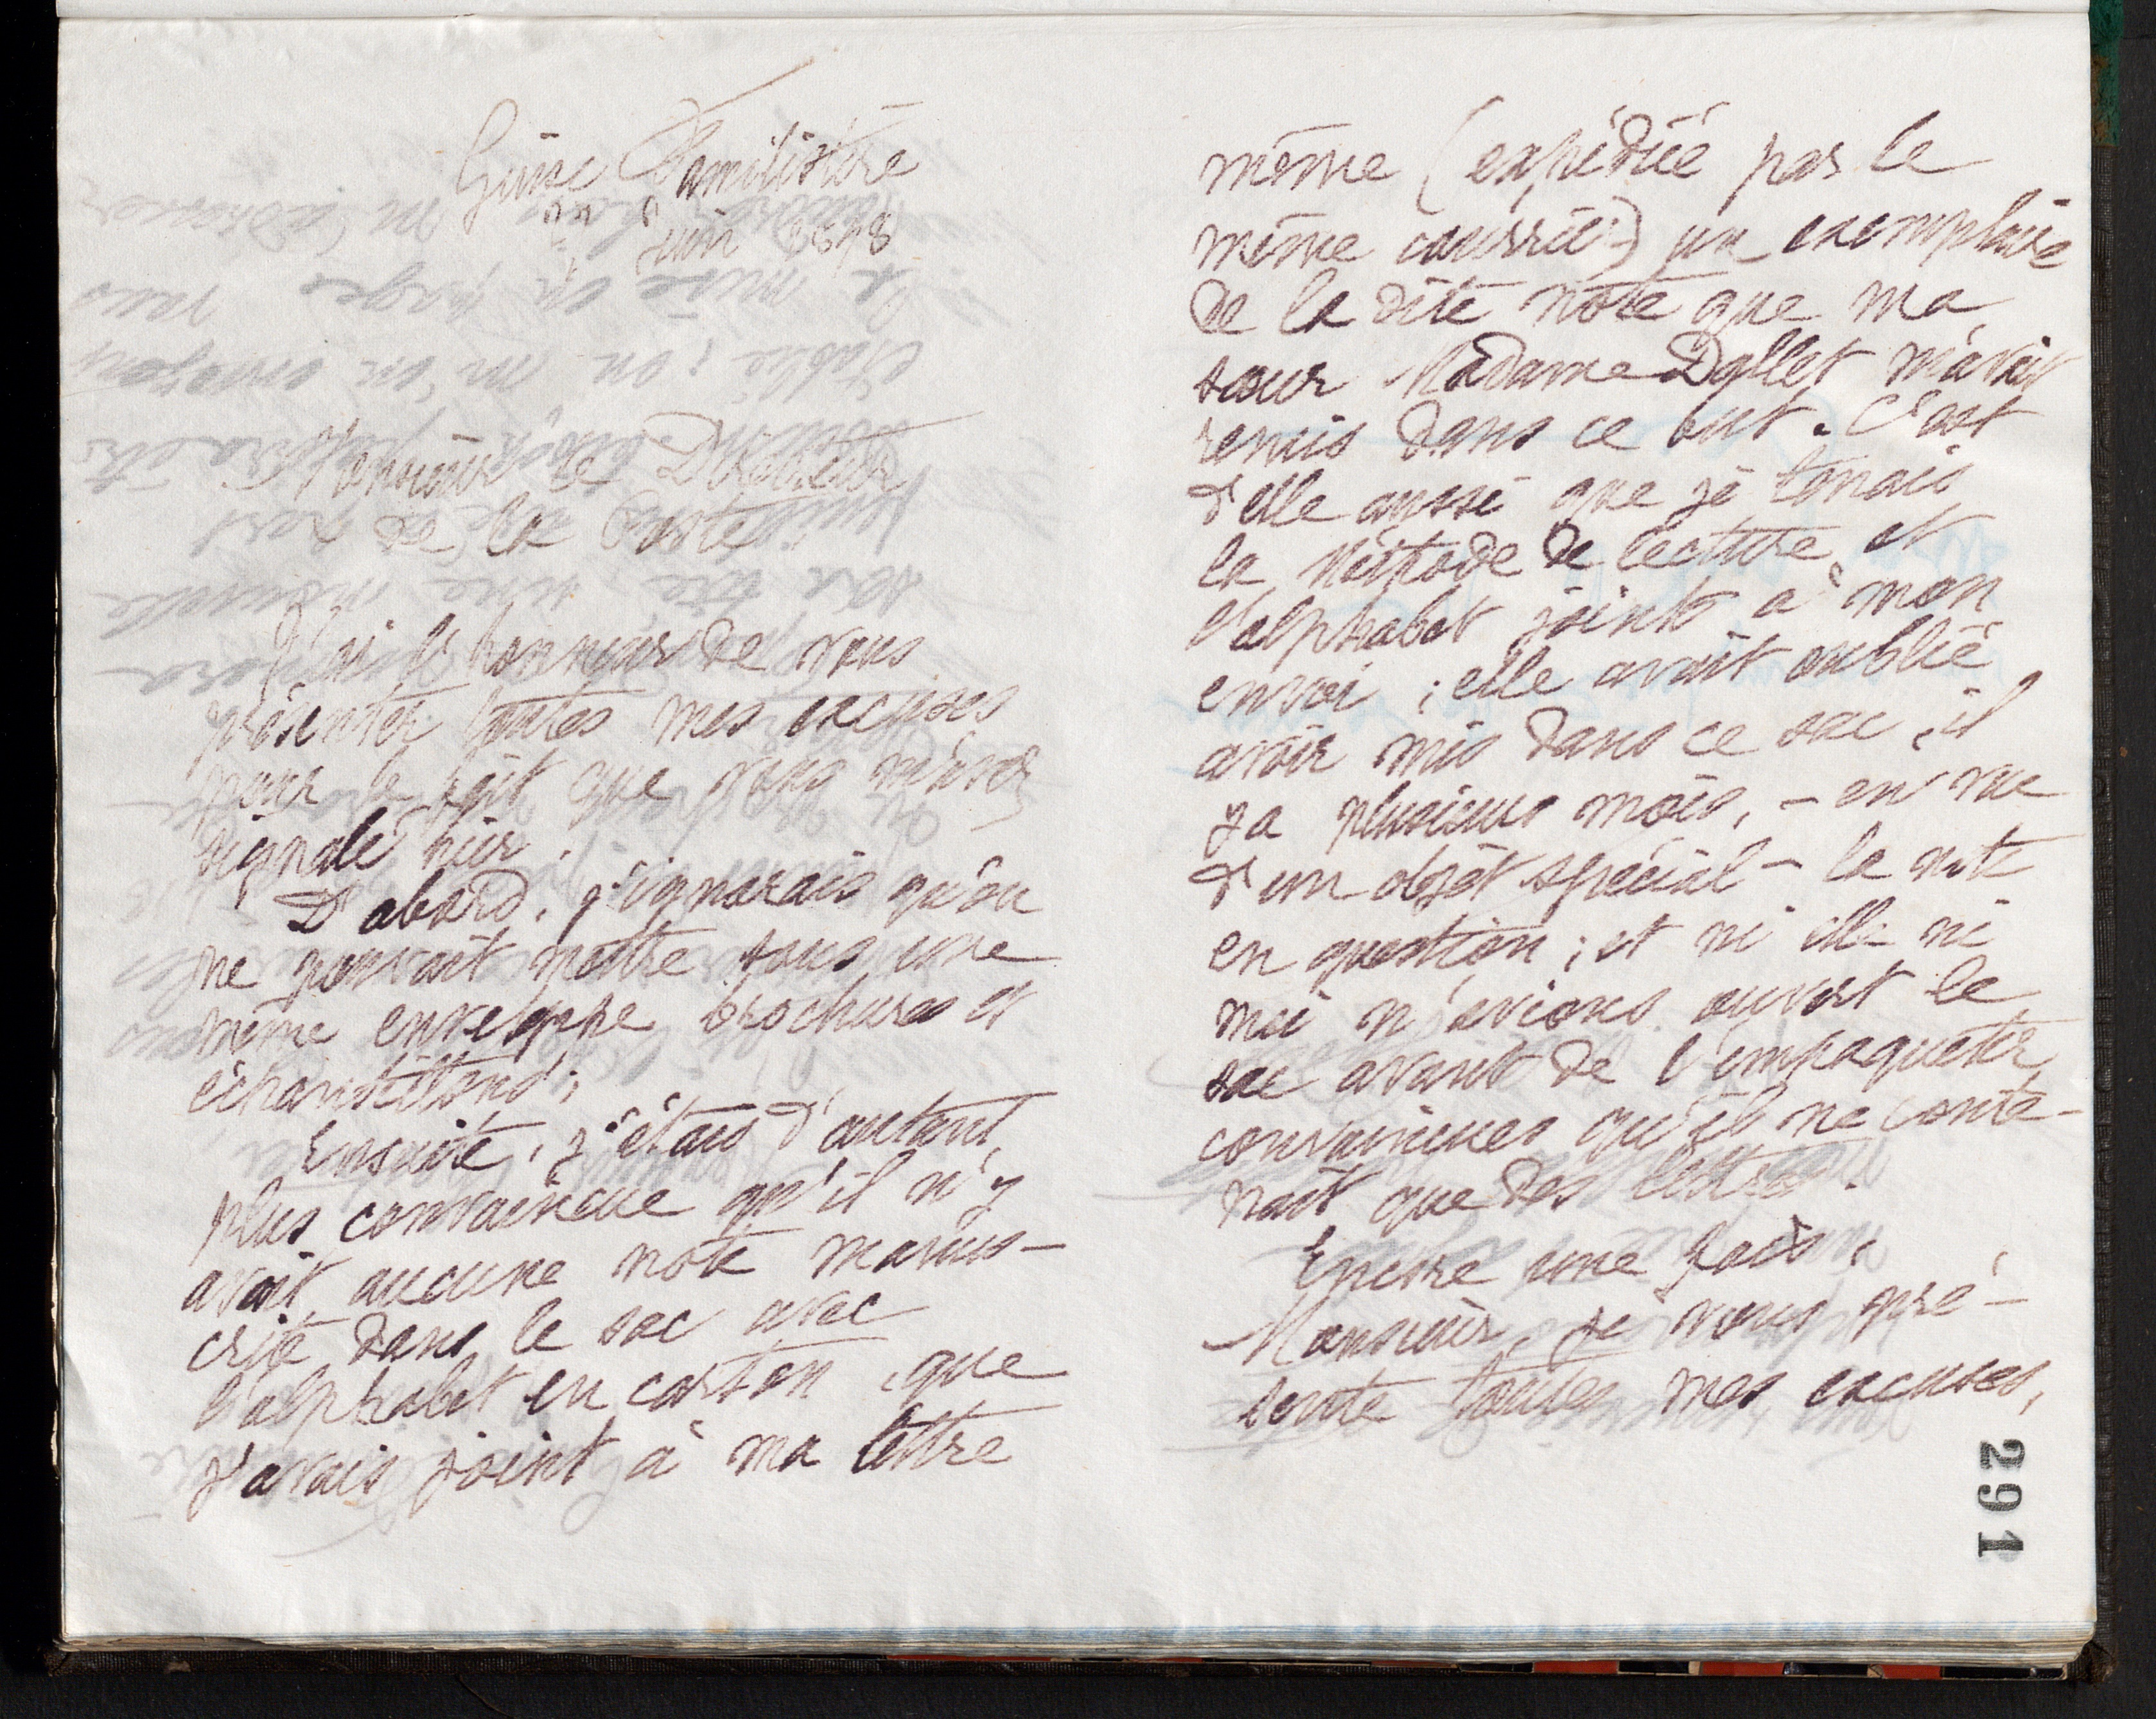 Guise Familistère
27 juin 1898
Monsieur le Directeur
de la Poste
J'ai l'honneur de vous
présenter toutes mes excuses
pour le fait que vous m'avez
signalé hier.
D'abord, j'ignorais qu'on
ne pouvait mettre sous une
même enveloppe brochures et
échantillons;
Ensuite, j'étais d'autant
plus convaincue qu'il n'y
avait aucune note manus-
crite dans le sac avec
l'alphabet en carton, que
j'avais joint à ma lettre
même (expédiée par le
même courrier) un exemplaire
de la dite note que ma
sœur Madame Dallet m'avait
remis dans ce but. C'est
d'elle aussi que je tenais
la Méthode de lecture et
l'alphabet joints à mon
envoi; elle avait oublié
avoir mis dans ce sac, il
y a plusieurs mois, - en vue
d'un objet spécial - la note
en question; et ni elle ni
moi n'avions ouvert le
sac avant de l'empaqueter,
convaincues qu'il ne conte-
nait que des lettres.
Encore une fois,
Monsieur, je vous pré-
sente toutes mes excuses,
291